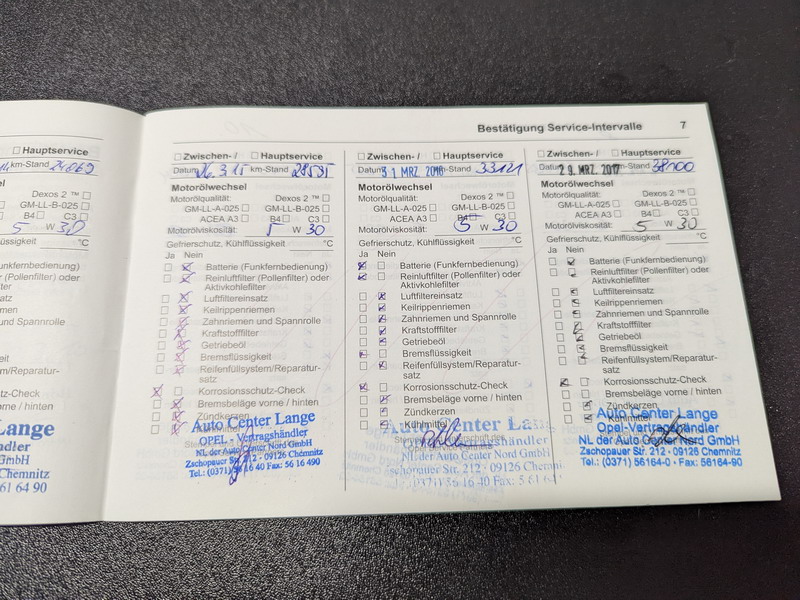 Bestätigung Service-Intervalle 7
Hauptservice
km-Stand 24069
5 W 30
°C
Lange
Chemnitz
61 64 90
Zwischen- / Hauptservice
Datum 26.3.15 km-Stand 28591
Motorölwechsel
Motorölqualität: Dexos 2 ™
GM-LL-A-025 GM-LL-B-025
ACEA A3 B4 C3
Motorölviskosität: 5 W 30
Gefrierschutz, Kühlflüssigkeit °C
Ja Nein
Batterie (Funkfernbedienung)
Reinluftfilter (Pollenfilter) oder
Aktivkohlefilter
Luftfiltereinsatz
Keilrippenriemen
Zahnriemen und Spannrolle
Kraftstofffilter
Getriebeöl
Bremsflüssigkeit
Reifenfüllsystem/Reparatur-
satz
Korrosionsschutz-Check
Bremsbeläge vorne / hinten
Zündkerzen
Auto Center Lange
OPEL - Vertragshändler
NL der Auto Center Nord GmbH
Zschopauer Str. 212 · 09126 Chemnitz
Tel.: (0371) 56 16 40 Fax: 56 16 490
Zwischen- / Hauptservice
Datum 31. MRZ. 2016 km-Stand 33121
Motorölwechsel
Motorölqualität: Dexos 2 ™
GM-LL-A-025 GM-LL-B-025
ACEA A3 B4 C3
Motorölviskosität: 5 W 30
Gefrierschutz, Kühlflüssigkeit °C
Ja Nein
Batterie (Funkfernbedienung)
Reinluftfilter (Pollenfilter) oder
Aktivkohlefilter
Luftfiltereinsatz
Keilrippenriemen
Zahnriemen und Spannrolle
Kraftstofffilter
Getriebeöl
Bremsflüssigkeit
Reifenfüllsystem/Reparatur-
satz
Korrosionsschutz-Check
Bremsbeläge vorne / hinten
Zündkerzen
Kühlmittel
Auto Center Lan
Vertragshändler
NL der Auto Center Nord GmbH
Zschopauer Str. 212 · 09126 Chemni
(0371) 56 16 40 Fax: 5 61 64
Zwischen- / Hauptservice
Datum 29. MRZ. 2017 km-Stand 38100
Motorölwechsel
Motorölqualität: Dexos 2 ™
GM-LL-A-025 GM-LL-B-025
ACEA A3 B4 C3
Motorölviskosität: 5 W 30
Gefrierschutz, Kühlflüssigkeit °C
Ja Nein
Batterie (Funkfernbedienung)
Reinluftfilter (Pollenfilter) oder
Aktivkohlefilter
Luftfiltereinsatz
Keilrippenriemen
Zahnriemen und Spannrolle
Kraftstofffilter
Getriebeöl
Bremsflüssigkeit
Reifenfüllsystem/Reparatur-
satz
Korrosionsschutz-Check
Bremsbeläge vorne / hinten
Zündkerzen
Auto Center Lange
Opel-Vertragshändler
NL der Auto Center Nord GmbH
Zschopauer Str. 212 · 09126 Chemnitz
Tel.: (0371) 56164-0 · Fax: 56164-90